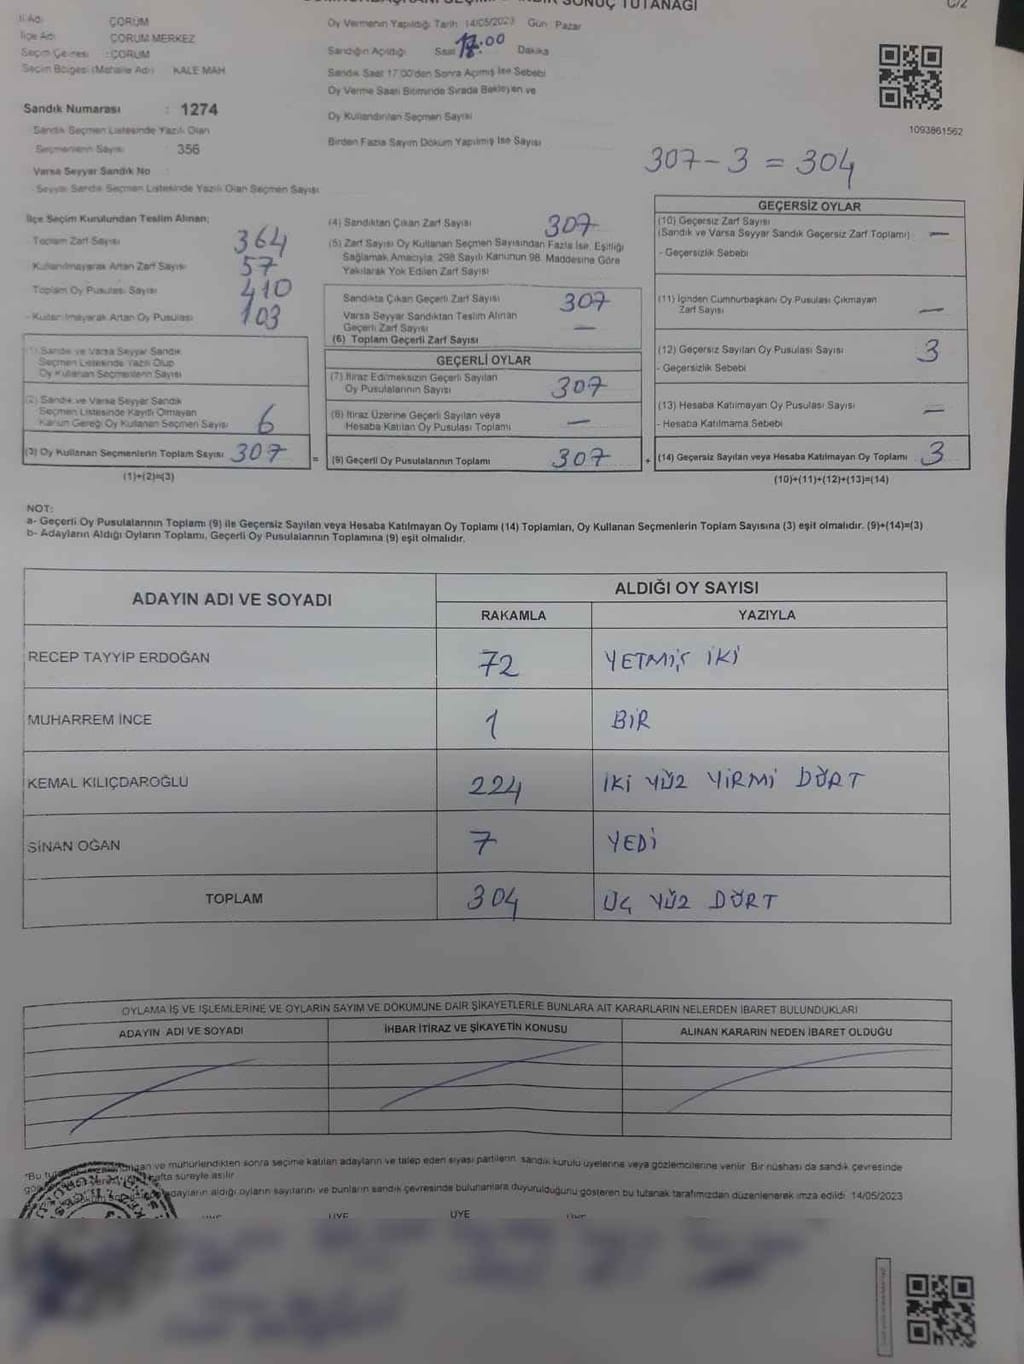 SONUÇ TUTANAĞI
C/2
İl Adı ÇORUM
İlçe Adı ÇORUM MERKEZ
Seçim Çevresi : ÇORUM
Seçim Bölgesi (Mahalle Adı) KALE MAH
Sandık Numarası : 1274
Sandık Seçmen Listesinde Yazılı Olan
Seçmenlerin Sayısı 356
Varsa Seyyar Sandık No
Seyyar Sandık Seçmen Listesinde Yazılı Olan Seçmen Sayısı
Oy Vermenin Yapıldığı Tarih 14/05/2023 Gün Pazar
Sandığın Açıldığı Saat 17.00 Dakika
Sandık Saat 17:00'den Sonra Açılmış İse Sebebi
Oy Verme Saati Bitiminde Sırada Bekleyen ve
Oy Kullandırılan Seçmen Sayısı
Birden Fazla Sayım Döküm Yapılmış İse Sayısı
1093861562
307-3=304
İlçe Seçim Kurulundan Teslim Alınan;
- Toplam Zarf Sayısı 364
- Kullanılmayarak Artan Zarf Sayısı 57
- Toplam Oy Pusulası Sayısı 410
- Kullanılmayarak Artan Oy Pusulası 103
(1) Sandık ve Varsa Seyyar Sandık
Seçmen Listesinde Yazılı Olup
Oy Kullanan Seçmenlerin Sayısı
(2) Sandık ve Varsa Seyyar Sandık
Seçmen Listesinde Kayıtlı Olmayan
Kanun Gereği Oy Kullanan Seçmen Sayısı 6
(3) Oy Kullanan Seçmenlerin Toplam Sayısı 307
(1)+(2)=(3)
(4) Sandıktan Çıkan Zarf Sayısı 307
(5) Zarf Sayısı Oy Kullanan Seçmen Sayısından Fazla İse, Eşitliği
Sağlamak Amacıyla, 298 Sayılı Kanunun 98. Maddesine Göre
Yakılarak Yok Edilen Zarf Sayısı
Sandıkta Çıkan Geçerli Zarf Sayısı 307
Varsa Seyyar Sandıktan Teslim Alınan
Geçerli Zarf Sayısı —
(6) Toplam Geçerli Zarf Sayısı
GEÇERLİ OYLAR
(7) İtiraz Edilmeksizin Geçerli Sayılan
Oy Pusulalarının Sayısı 307
(8) İtiraz Üzerine Geçerli Sayılan veya
Hesaba Katılan Oy Pusulası Toplamı —
= (9) Geçerli Oy Pusulalarının Toplamı 307
GEÇERSİZ OYLAR
(10) Geçersiz Zarf Sayısı
(Sandık ve Varsa Seyyar Sandık Geçersiz Zarf Toplamı) —
- Geçersizlik Sebebi
(11) İçinden Cumhurbaşkanı Oy Pusulası Çıkmayan
Zarf Sayısı —
(12) Geçersiz Sayılan Oy Pusulası Sayısı 3
- Geçersizlik Sebebi
(13) Hesaba Katılmayan Oy Pusulası Sayısı —
- Hesaba Katılmama Sebebi
+ (14) Geçersiz Sayılan veya Hesaba Katılmayan Oy Toplamı 3
(10)+(11)+(12)+(13)=(14)
NOT:
a- Geçerli Oy Pusulalarının Toplamı (9) ile Geçersiz Sayılan veya Hesaba Katılmayan Oy Toplamı (14) Toplamları, Oy Kullanan Seçmenlerin Toplam Sayısına (3) eşit olmalıdır. (9)+(14)=(3)
b- Adayların Aldığı Oyların Toplamı, Geçerli Oy Pusulalarının Toplamına (9) eşit olmalıdır.
ADAYIN ADI VE SOYADI ALDIĞI OY SAYISI
RAKAMLA YAZIYLA
RECEP TAYYİP ERDOĞAN 72 YETMİŞ İKİ
MUHARREM İNCE 1 BİR
KEMAL KILIÇDAROĞLU 224 İKİ YÜZ YİRMİ DÖRT
SİNAN OĞAN 7 YEDİ
TOPLAM 304 ÜÇ YÜZ DÖRT
OYLAMA İŞ VE İŞLEMLERİNE VE OYLARIN SAYIM VE DÖKÜMÜNE DAİR ŞİKAYETLERLE BUNLARA AİT KARARLARIN NELERDEN İBARET BULUNDUKLARI
ADAYIN ADI VE SOYADI İHBAR İTİRAZ VE ŞİKAYETİN KONUSU ALINAN KARARIN NEDEN İBARET OLDUĞU
ve mühürlendikten sonra seçime katılan adayların ve talep eden siyasi partilerin, sandık kurulu üyelerine veya gözlemcilerine verilir. Bir nüshası da sandık çevresinde
hafta süreyle asılır.
adayların aldığı oyların sayılarını ve bunların sandık çevresinde bulunanlara duyurulduğunu gösteren bu tutanak tarafımızdan düzenlenerek imza edildi. 14/05/2023
ÜYE ÜYE